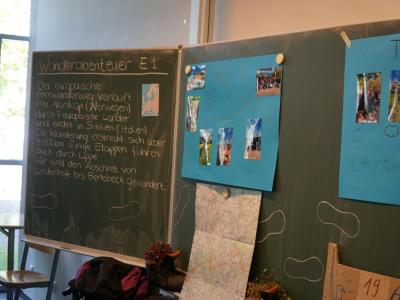 Wanderabenteuer E1
Der europäische
Fernwanderweg verläuft
vom Nordkap (Norwegen)
durch 7 europäische Länder
und endet in Sizilien (Italien)
Die Wanderung erstreckt sich über
Einige Etappen führen
durch Lippe
Wir sind den Abschnitt von
Linderhofe bis Berlebeck gewandert.
T
19